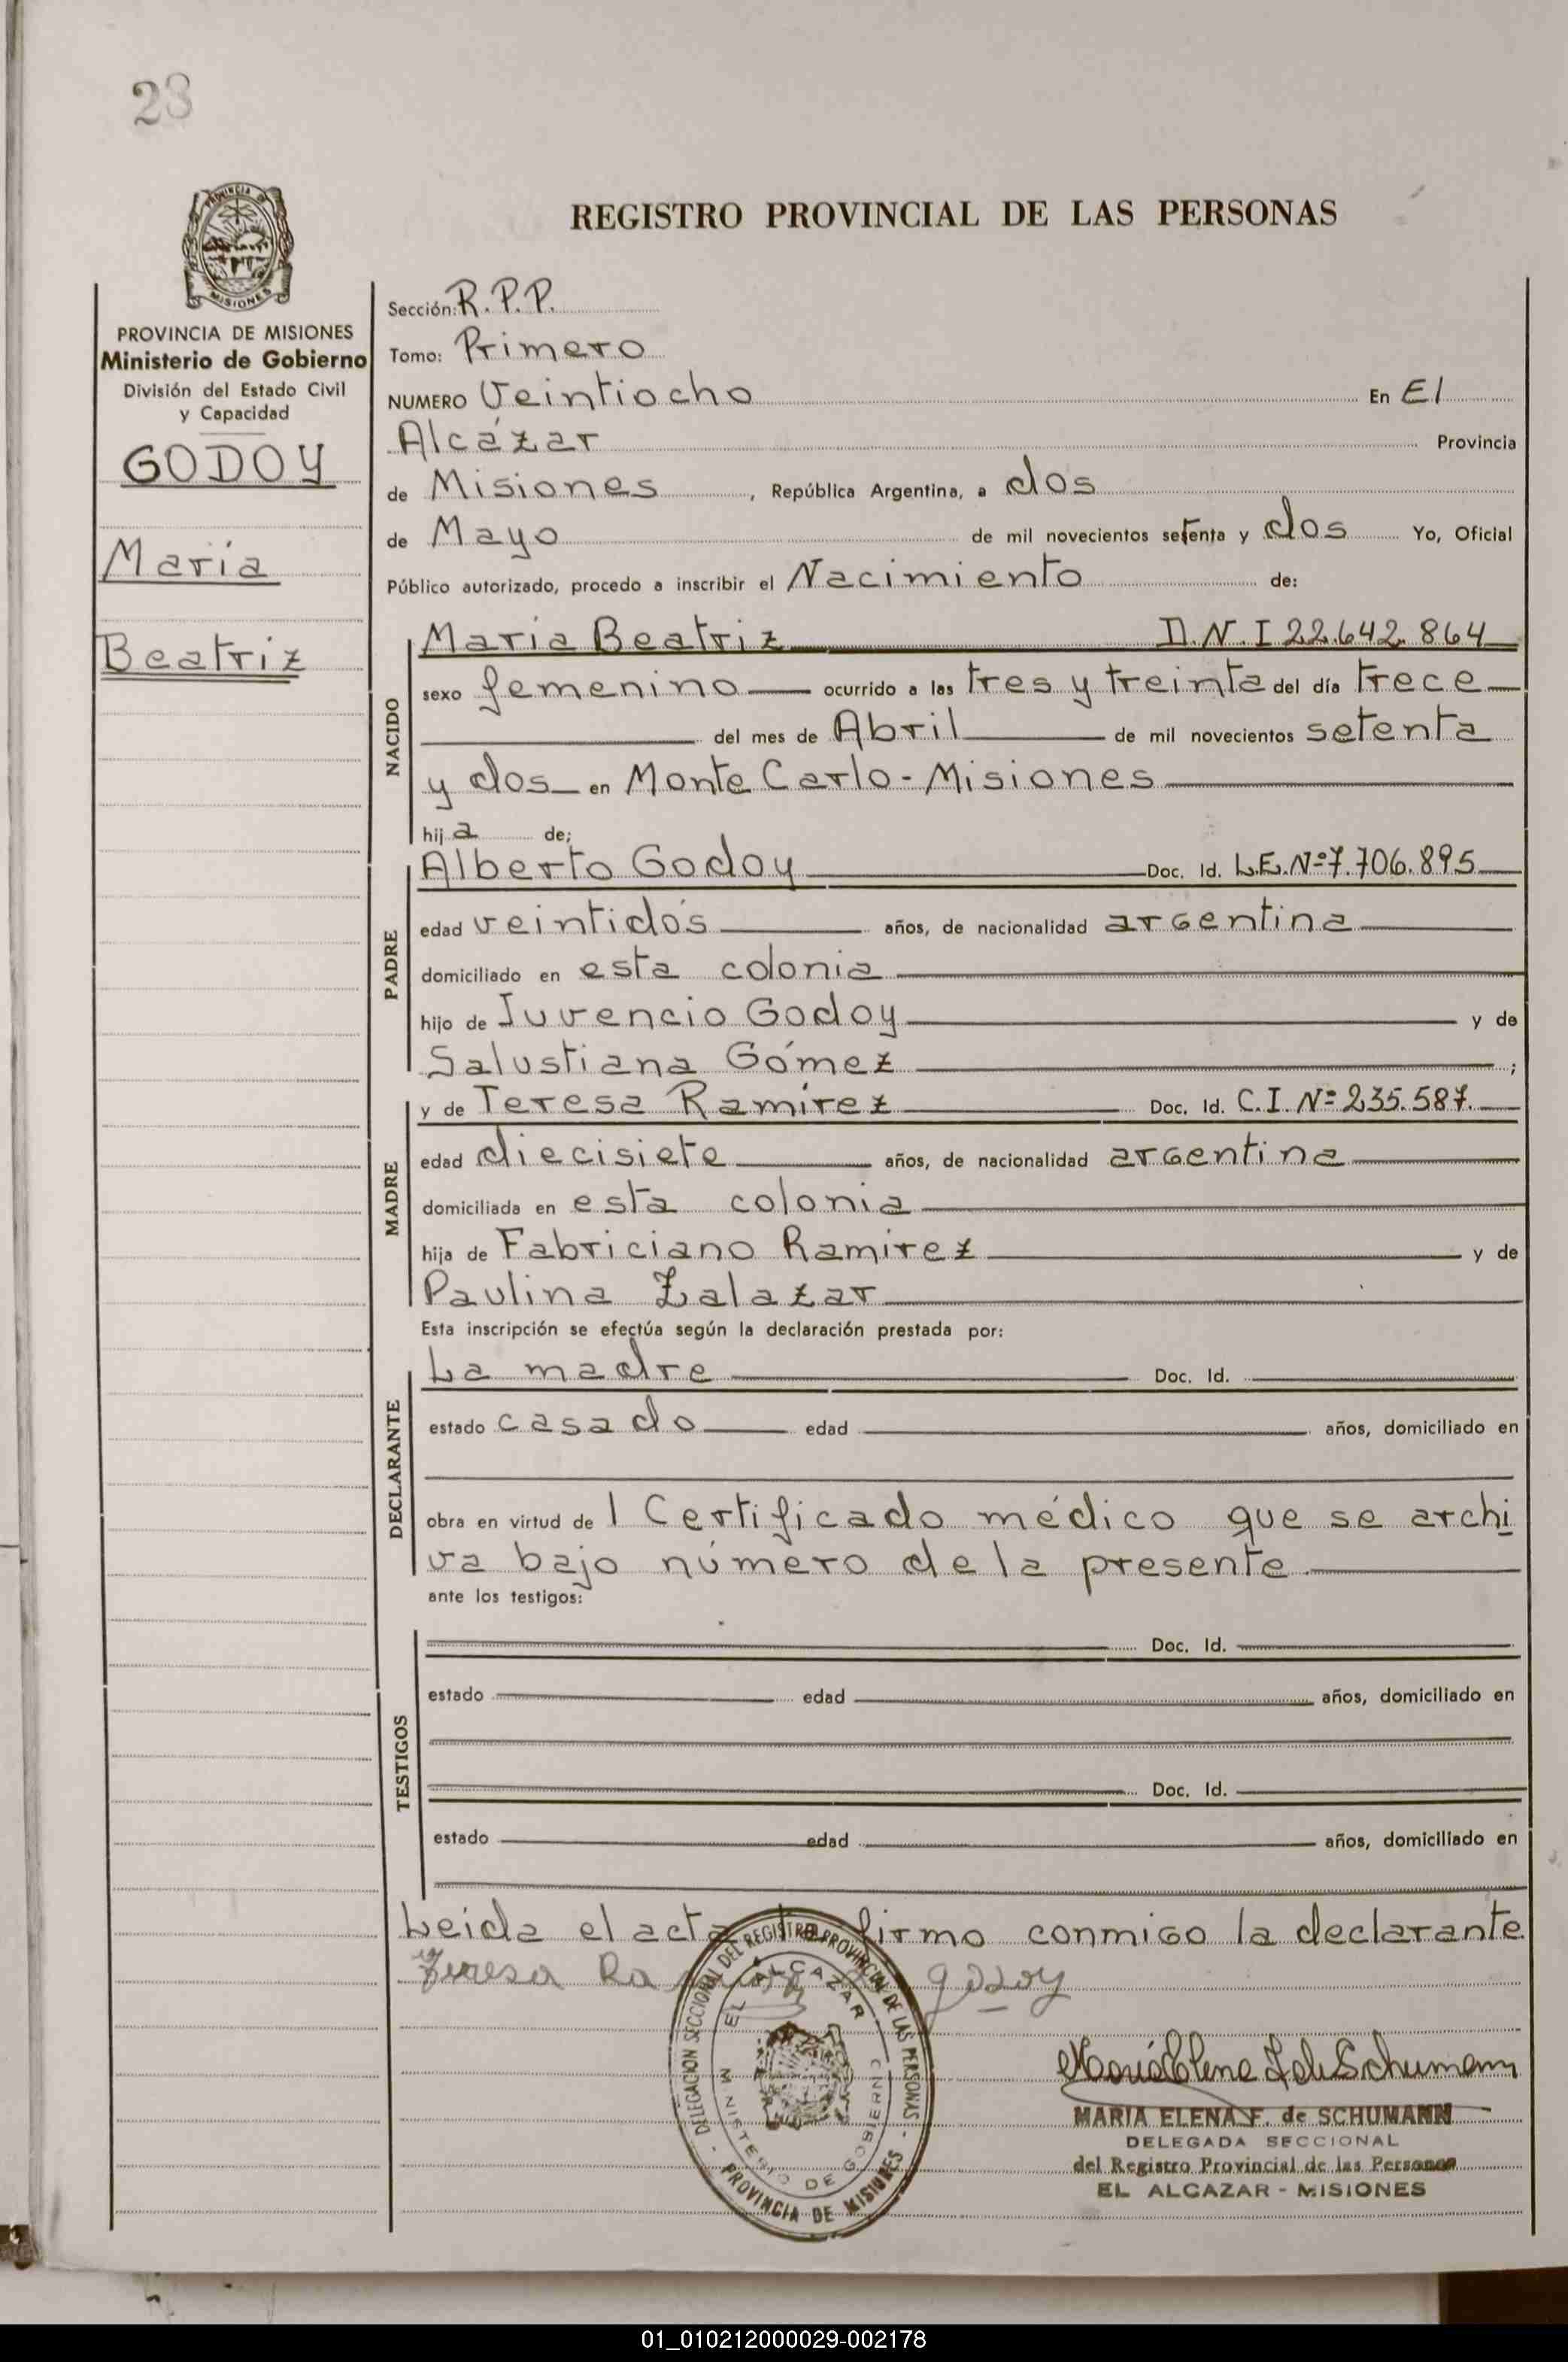 28
REGISTRO PROVINCIAL DE LAS PERSONAS
PROVINCIA DE
MISIONES
PROVINCIA DE MISIONES
Ministerio de Gobierno
División del Estado Civil
y Capacidad
GODOY
María
Beatriz
Sección: R.P.P.
Tomo: Primero
NUMERO Veintiocho En El
Alcázar Provincia
de Misiones, República Argentina, a dos
de Mayo de mil novecientos setenta y dos Yo, Oficial
Público autorizado, procedo a inscribir el Nacimiento de:
NACIDO
María Beatriz D.N.I 22.642.864
sexo femenino ocurrido a las tres y treinta del día trece
del mes de Abril de mil novecientos setenta
y dos en Monte Carlo - Misiones
hija de;
PADRE
Alberto Godoy Doc. Id. L.E. Nº 7.706.895
edad veintidós años, de nacionalidad argentina
domiciliado en esta colonia
hijo de Juvencio Godoy y de
Salustiana Gómez ;
MADRE
y de Teresa Ramírez Doc. Id. C.I. Nº 235.587.
edad diecisiete años, de nacionalidad argentina
domiciliada en esta colonia
hija de Fabriciano Ramírez y de
Paulina Zalazar
Esta inscripción se efectúa según la declaración prestada por:
DECLARANTE
La madre Doc. Id.
estado casado edad años, domiciliado en
obra en virtud de 1 Certificado médico que se archi
va bajo número de la presente
ante los testigos:
TESTIGOS
Doc. Id.
estado edad años, domiciliado en
Doc. Id.
estado edad años, domiciliado en
Leída el acta la firmo conmigo la declarante
Teresa godoy
DELEGACION SECCIONAL DEL REGISTRO PROVINCIAL DE LAS PERSONAS
EL ALCAZAR
MINISTERIO DE GOBIERNO
- PROVINCIA DE MISIONES -
María Elena F de Schumann
MARIA ELENA F. de SCHUMANN
DELEGADA SECCIONAL
del Registro Provincial de las Personas
EL ALCAZAR - MISIONES
01_010212000029-002178